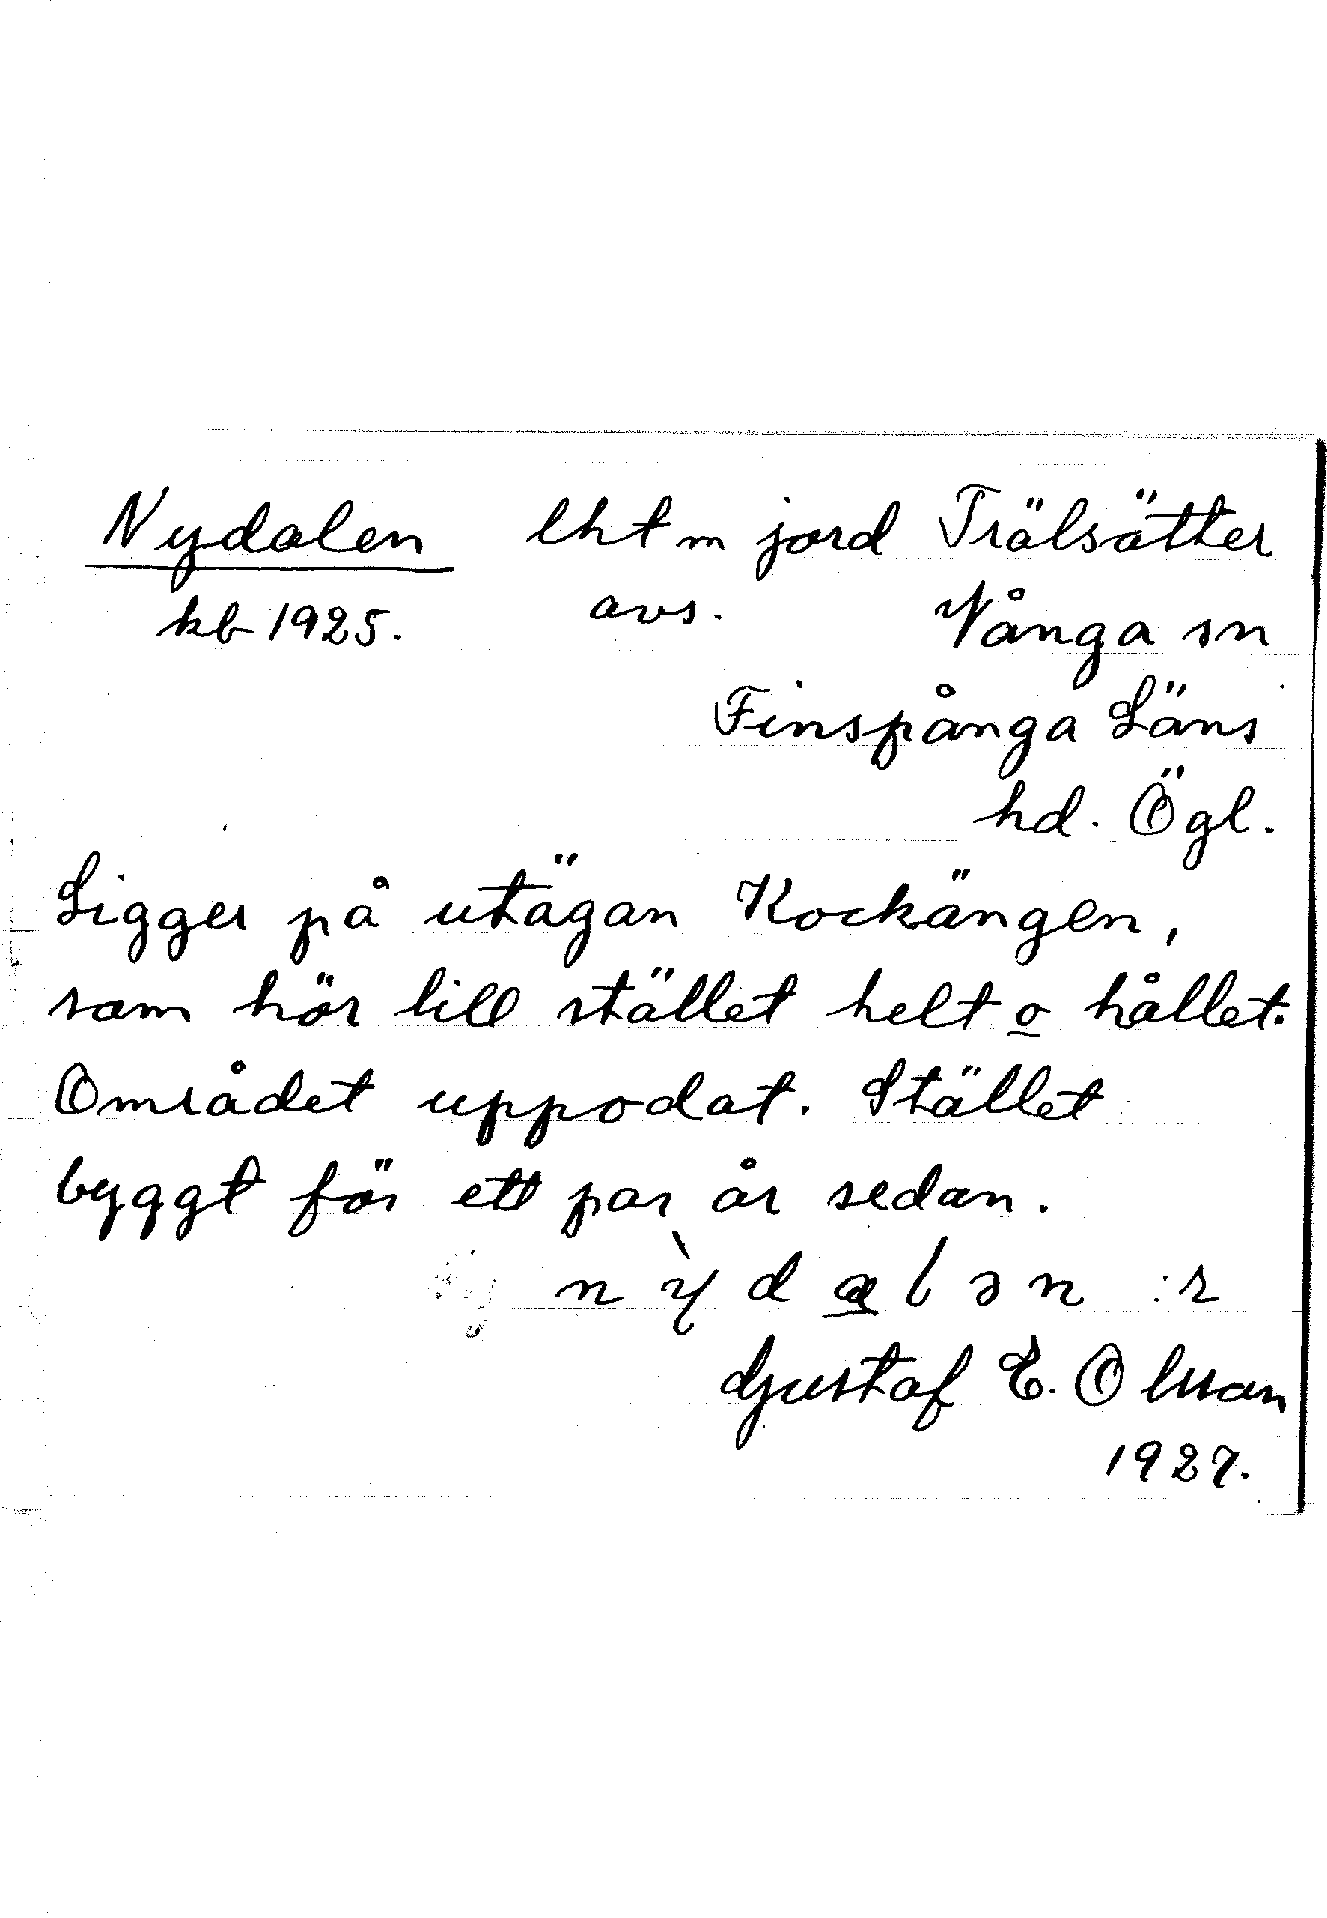 Nydalen lht m jord Trälsätter
kb 1925. avs. Vånga sn
Finspånga Läns
hd. Ögl.
Ligger på utägan Kockängen,
som hör till stället helt o hållet.
Området uppodat. Stället
byggt för ett par år sedan.
Gustaf E. Olsson
1927.